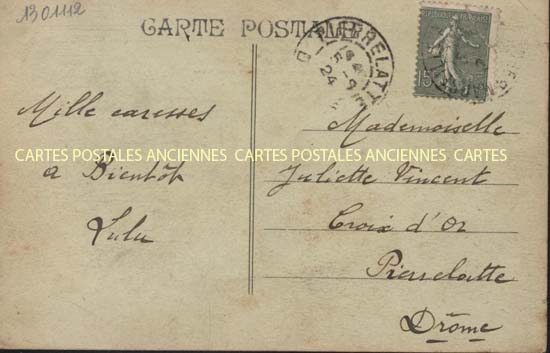 1301112
CARTE POSTALE
PIERRELATTE
24
REPUBLIQUE FRANÇAISE
15
Mille caresses
a Bientôt
Lulu
Mademoiselle
Juliette Vincent
Croix d'Or
Pierrelatte
Drôme
CARTES POSTALES ANCIENNES CARTES POSTALES ANCIENNES CARTES